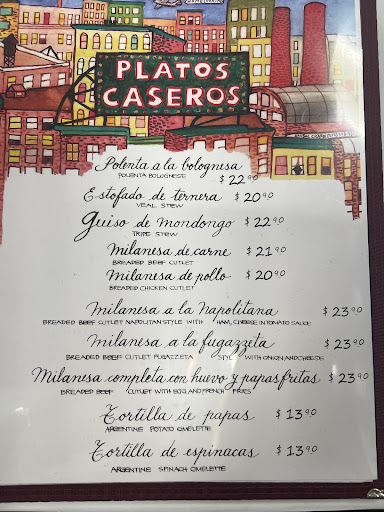 PLATOS
CASEROS
Polenta a la bolognesa $22.90
POLENTA BOLOGNESE
Estofado de ternera $20.90
VEAL STEW
Guiso de mondongo $22.90
TRIPE STEW
Milanesa de carne $21.90
BREADED BEEF CUTLET
Milanesa de pollo $20.90
BREADED CHICKEN CUTLET
Milanesa a la Napolitana $23.90
BREADED BEEF CUTLET NAPOLITAN STYLE WITH HAM, CHEESE IN TOMATO SAUCE
Milanesa a la fugazzeta $23.90
BREADED BEEF CUTLET FUGAZZETA STYL WITH ONION AND CHEESE
Milanesa completa con huevo y papas fritas $23.90
BREADED BEEF CUTLET WITH EGG AND FRENCH FRIES
Tortilla de papas $13.90
ARGENTINE POTATO OMELETTE
Tortilla de espinacas $13.90
ARGENTINE SPINACH OMELETTE